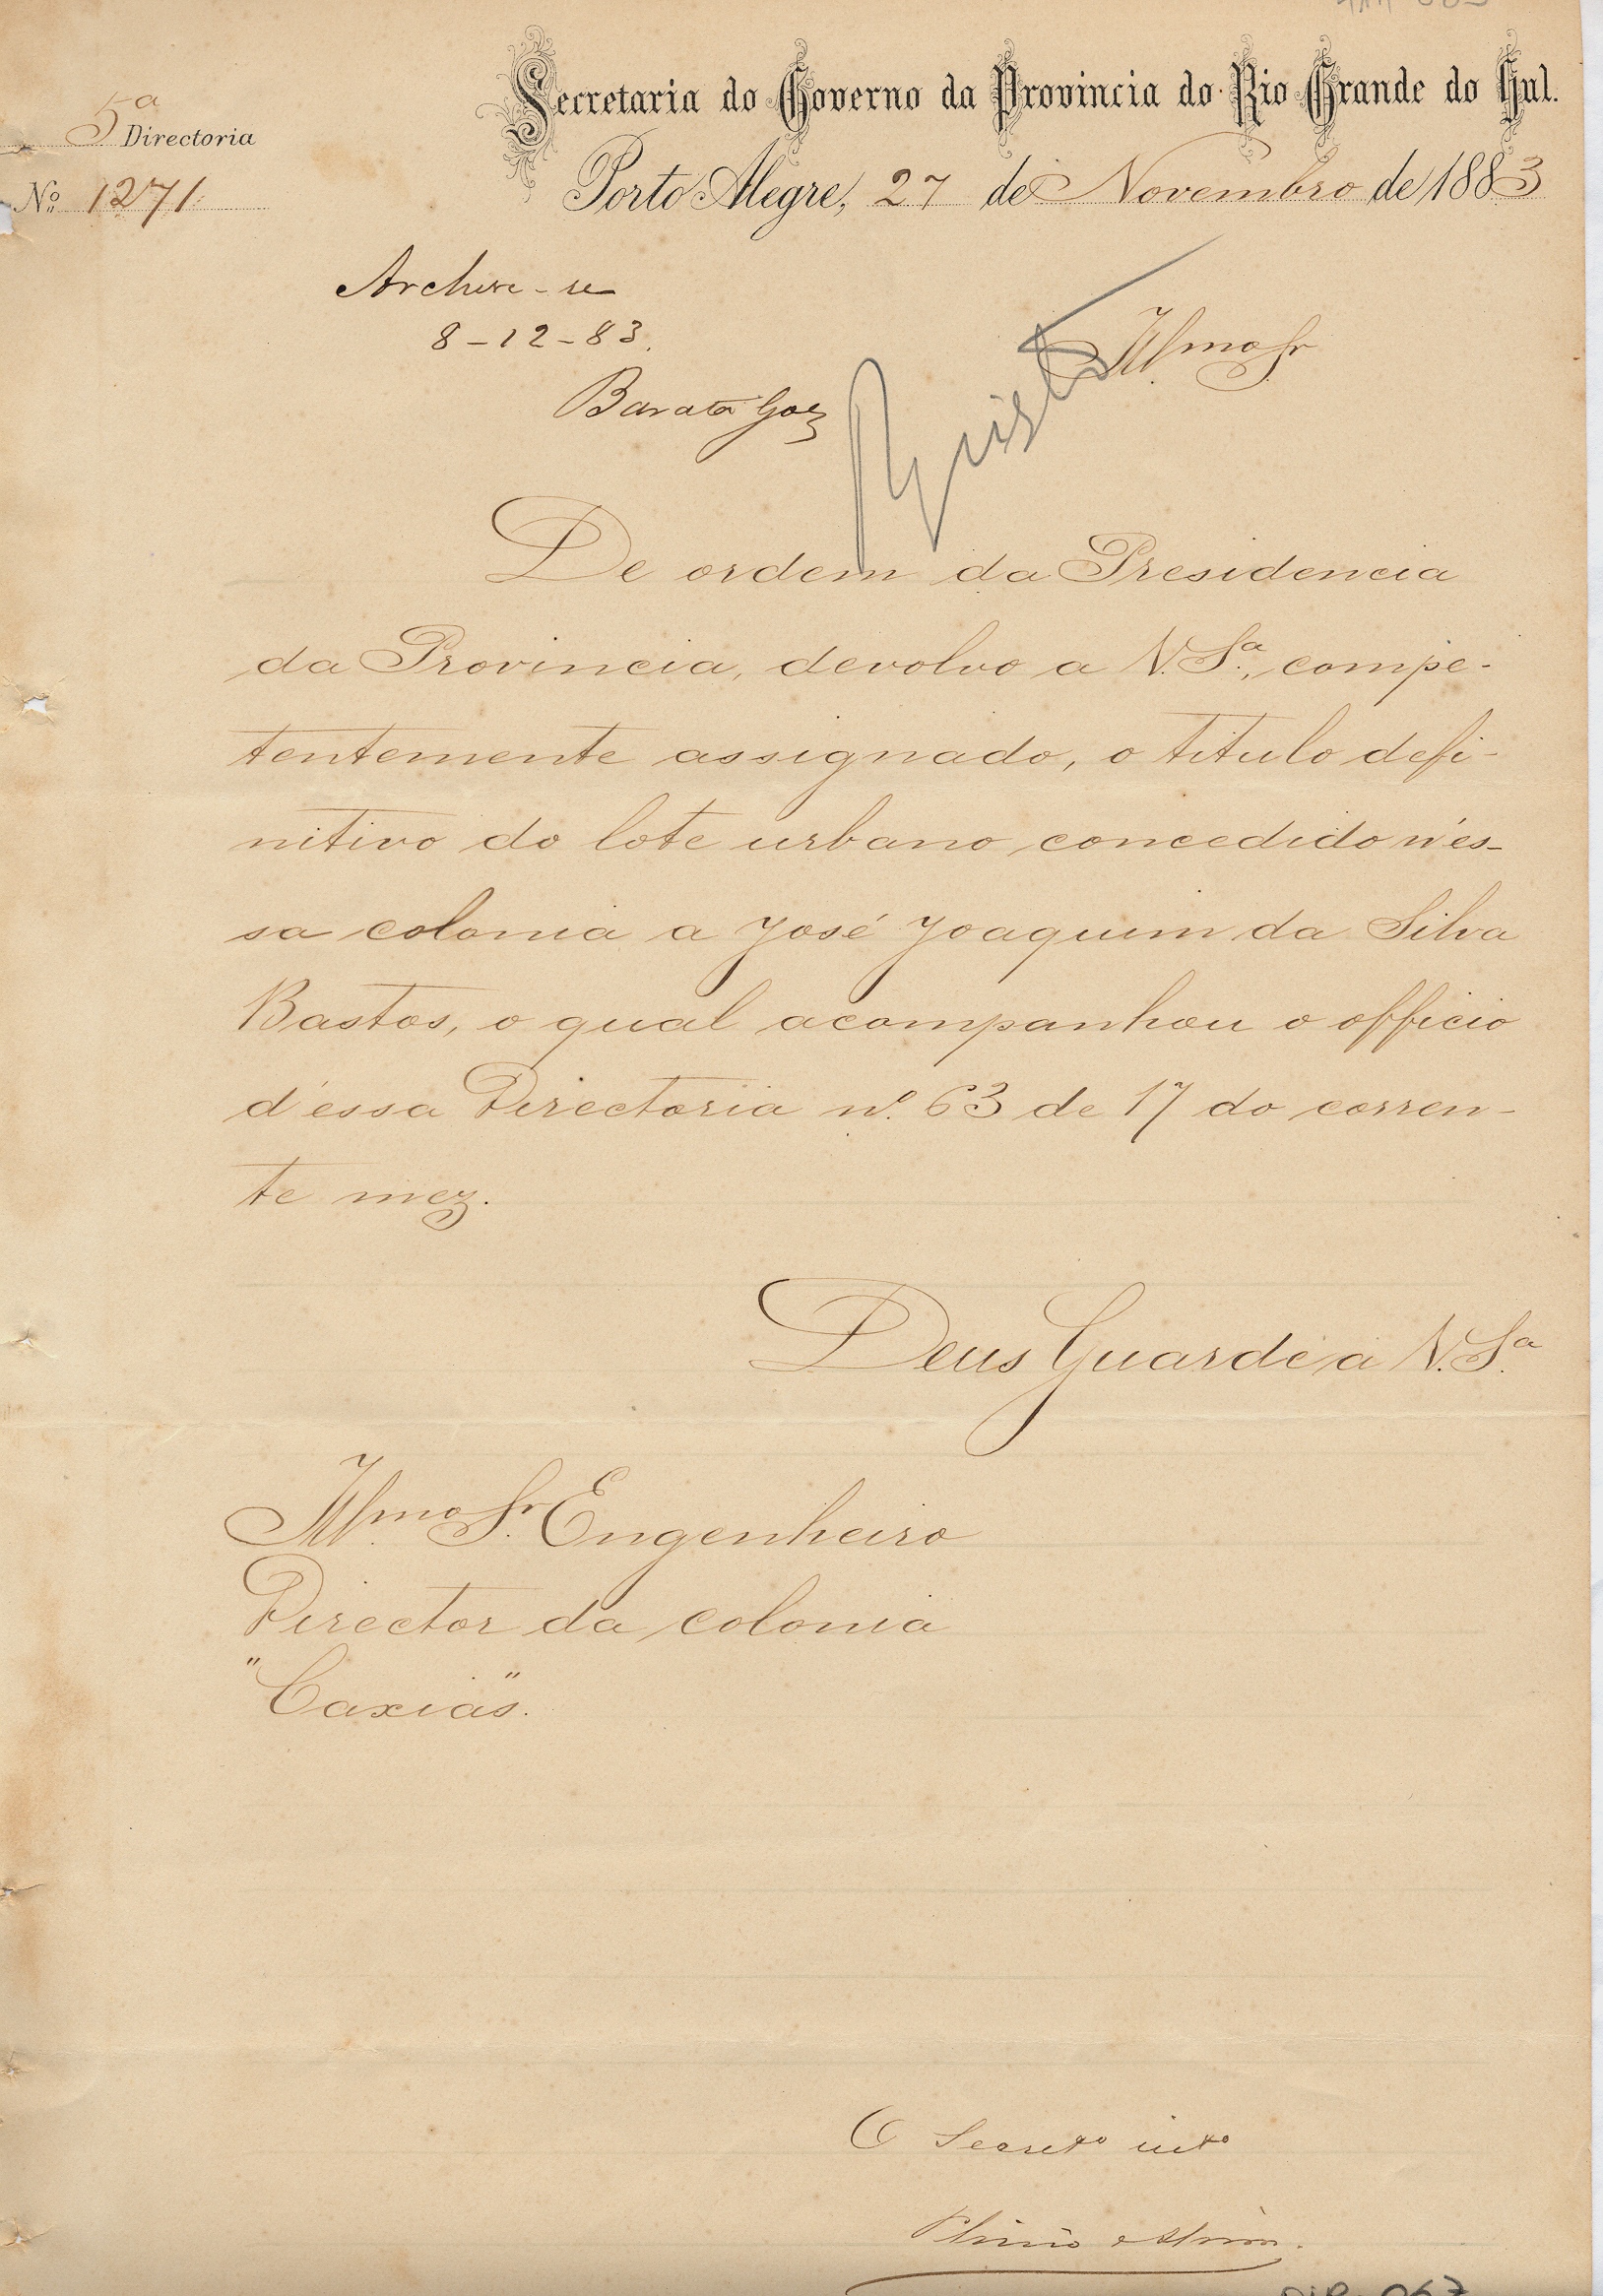 Secretaria do Governo da Provincia do Rio Grande do Sul.
5ª Directoria
Nº 1271
Porto Alegre, 27 de Novembro de 1883
Archive-se
8-12-83.
Barata Goes
Illmo Sr
De ordem da Presidencia
da Provincia, devolvo a V.Sª, compe-
tentemente assignado, o titulo defi-
nitivo do lote urbano concedido n'es-
sa colonia a José Joaquim da Silva
Bastos, o qual acompanhou o officio
d'essa Directoria nº 63 de 17 do corren-
te mez.
Deus Guarde a V.Sª
Illmo Sr. Engenheiro
Director da colonia
"Caxias".
O Secretº intº